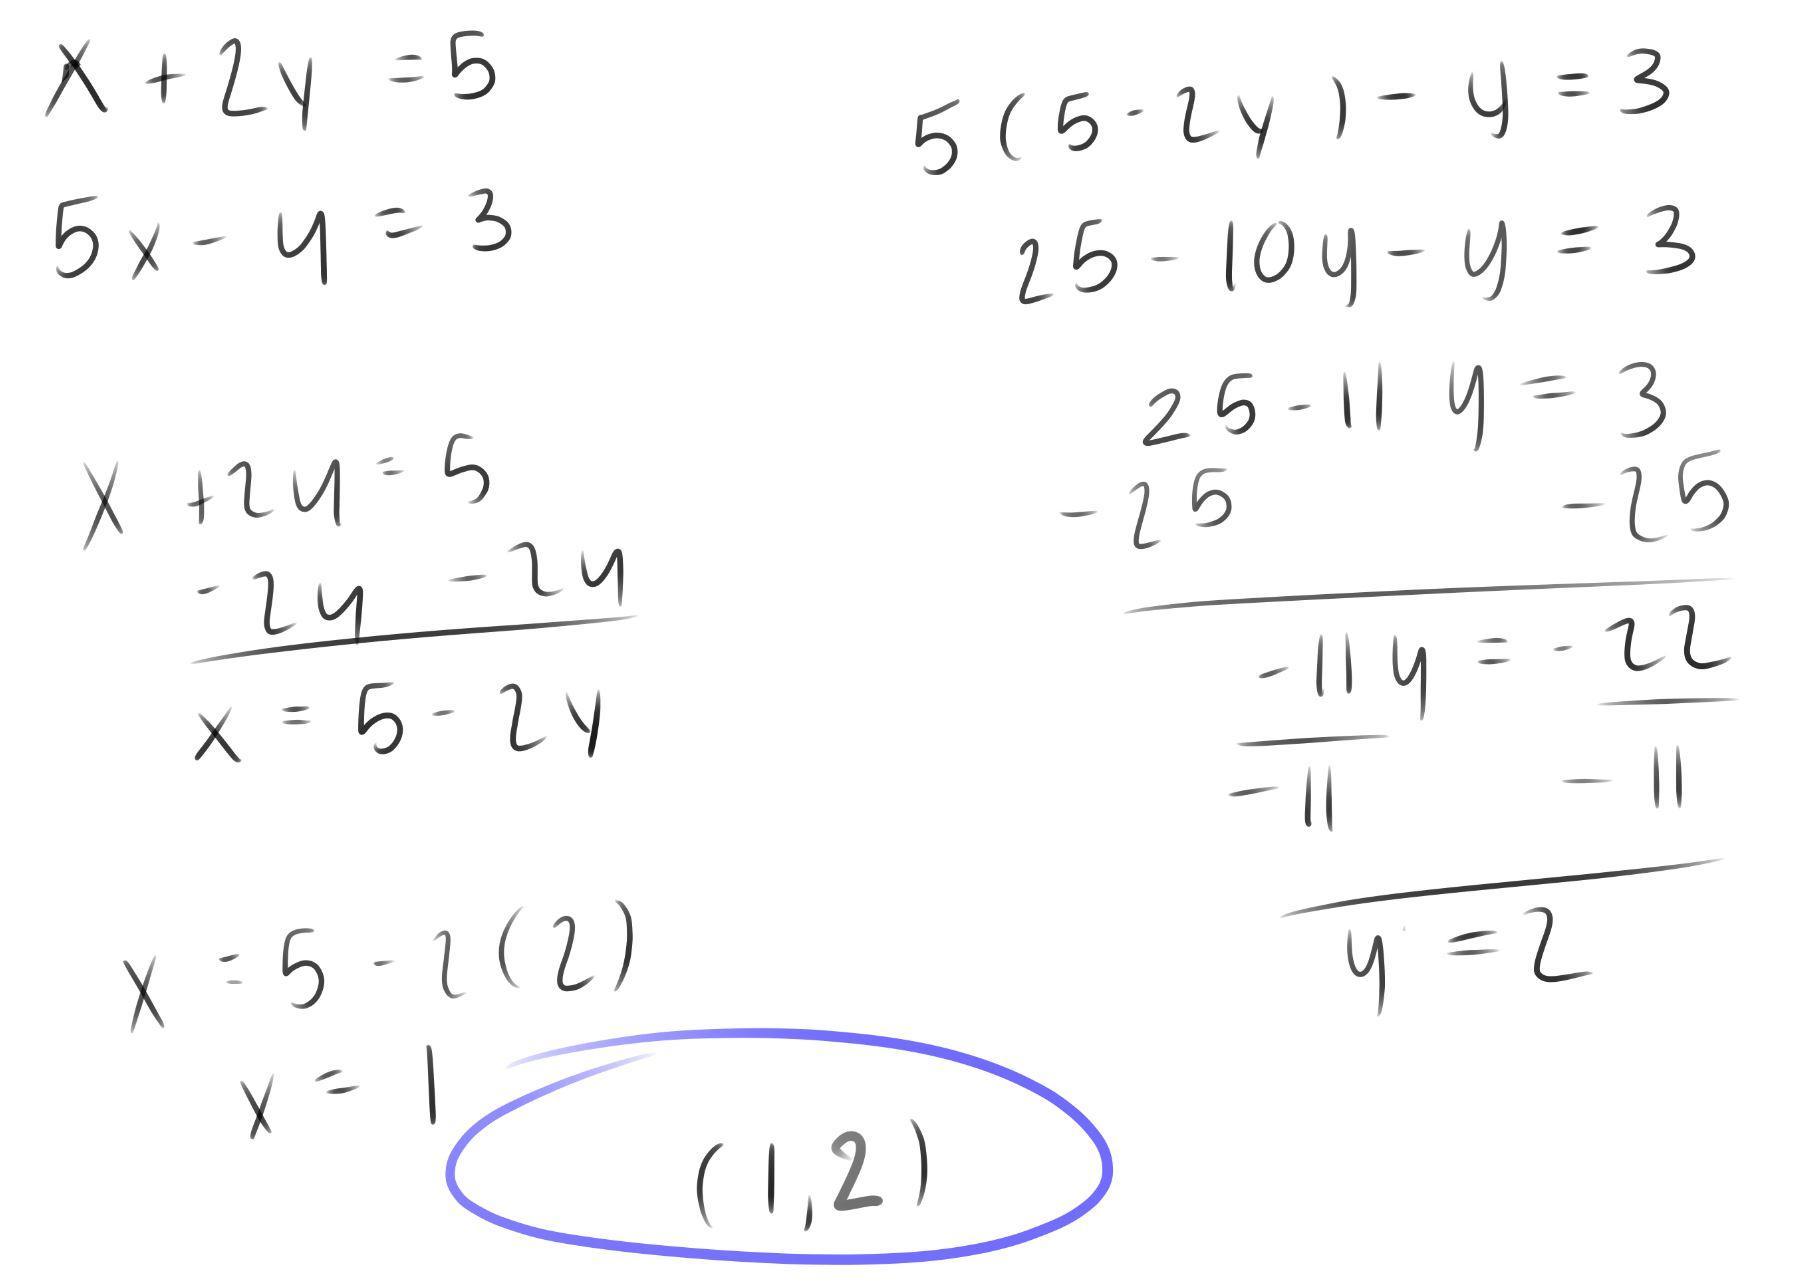 x + 2y = 5
5x - y = 3
x + 2y = 5
- 2y - 2y
x = 5 - 2y
5(5 - 2y) - y = 3
25 - 10y - y = 3
25 - 11y = 3
-25 -25
-11y = -22
-11 -11
y = 2
x = 5 - 2(2)
x = 1
(1,2)